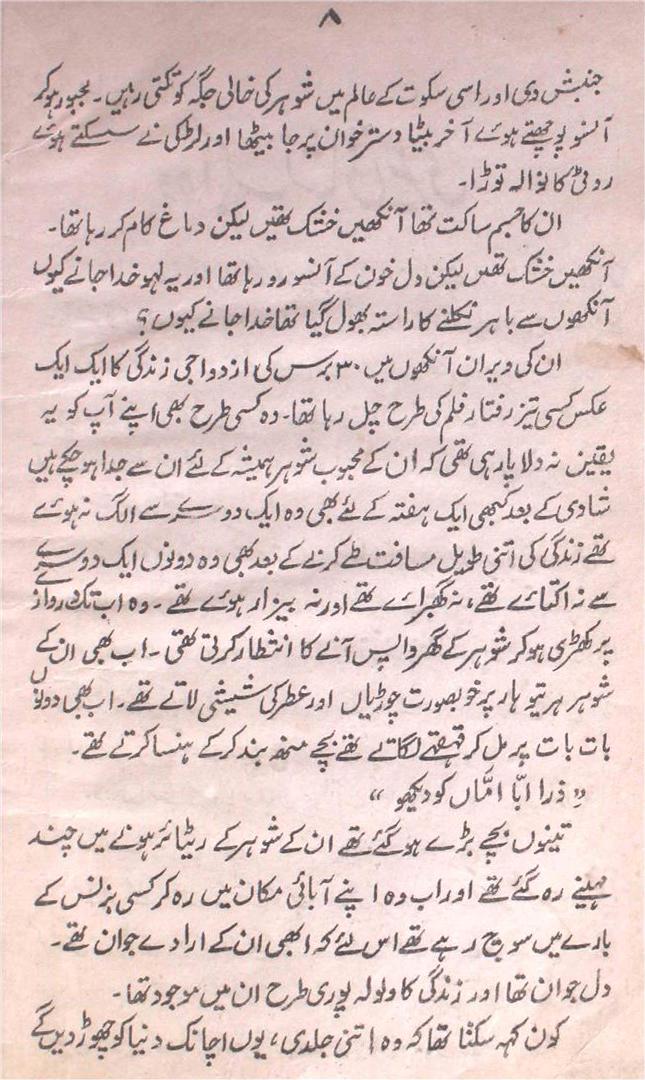 ۸
جنبش دی اور اسی سکوت کے عالم میں شوہر کی خالی جگہ کو تکتی رہیں۔ مجبور ہو کر
آنسو پوچھتے ہوئے آخر بیٹا دستر خوان پر جا بیٹھا اور لڑکی نے سسکتے ہوئے
روٹی کا نوالہ توڑا۔
ان کا جسم ساکت تھا آنکھیں خشک تھیں لیکن دماغ کام کر رہا تھا۔
آنکھیں خشک تھیں لیکن دل خون کے آنسو رو رہا تھا اور یہ لہو خدا جانے کیوں
آنکھوں سے باہر نکلنے کا راستہ بھول گیا تھا خدا جانے کیوں؟
ان کی ویران آنکھوں میں ۳۰ برس کی ازدواجی زندگی کا ایک ایک
عکس کسی تیز رفتار فلم کی طرح چل رہا تھا۔ وہ کسی طرح بھی اپنے آپ کو یہ
یقین نہ دلا پا رہی تھی کہ ان کے محبوب شوہر ہمیشہ کے لئے ان سے جدا ہو چکے ہیں
شادی کے بعد کبھی ایک ہفتہ کے لئے بھی وہ ایک دوسرے سے الگ نہ ہوئے
تھے زندگی کی اتنی طویل مسافت طے کرنے کے بعد بھی وہ دونوں ایک دوسرے
سے نہ اکتائے تھے، نہ گھبرائے تھے اور نہ بیزار ہوئے تھے۔ وہ اب تک دروازے
پر کھڑی ہو کر شوہر کے گھر واپس آنے کا انتظار کرتی تھی۔ اب بھی ان کے
شوہر ہر تیوہار پر خوبصورت چوڑیاں اور عطر کی شیشی لاتے تھے۔ اب بھی دونوں
بات بات پر مل کر قہقہے لگاتے تھے بچے منھ بند کر کے ہنسا کرتے تھے۔
"ذرا ابّا امّاں کو دیکھو"
تینوں بچے بڑے ہو گئے تھے ان کے شوہر کے ریٹائر ہونے میں چند
مہینے رہ گئے تھے اور اب وہ اپنے آبائی مکان میں رہ کر کسی بزنس کے
بارے میں سوچ رہے تھے اس لئے کہ ابھی ان کے ارادے جوان تھے۔
دل جوان تھا اور زندگی کا ولولہ پوری طرح ان میں موجود تھا۔
کون کہہ سکتا تھا کہ وہ اتنی جلدی، یوں اچانک دنیا کو چھوڑ دیں گے